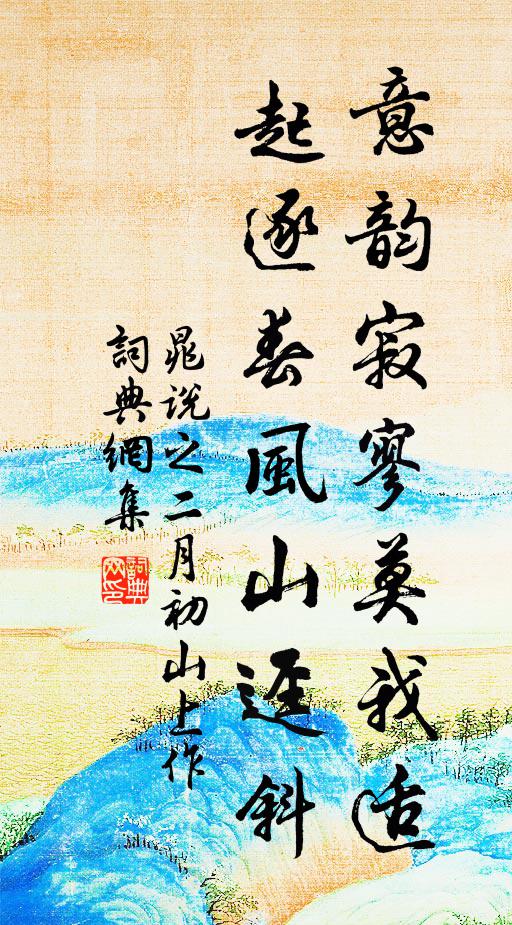 意韵寂寥莫我适
起逐春风山迳斜
晁说之二月初山上作
詞典網集
詞典网印